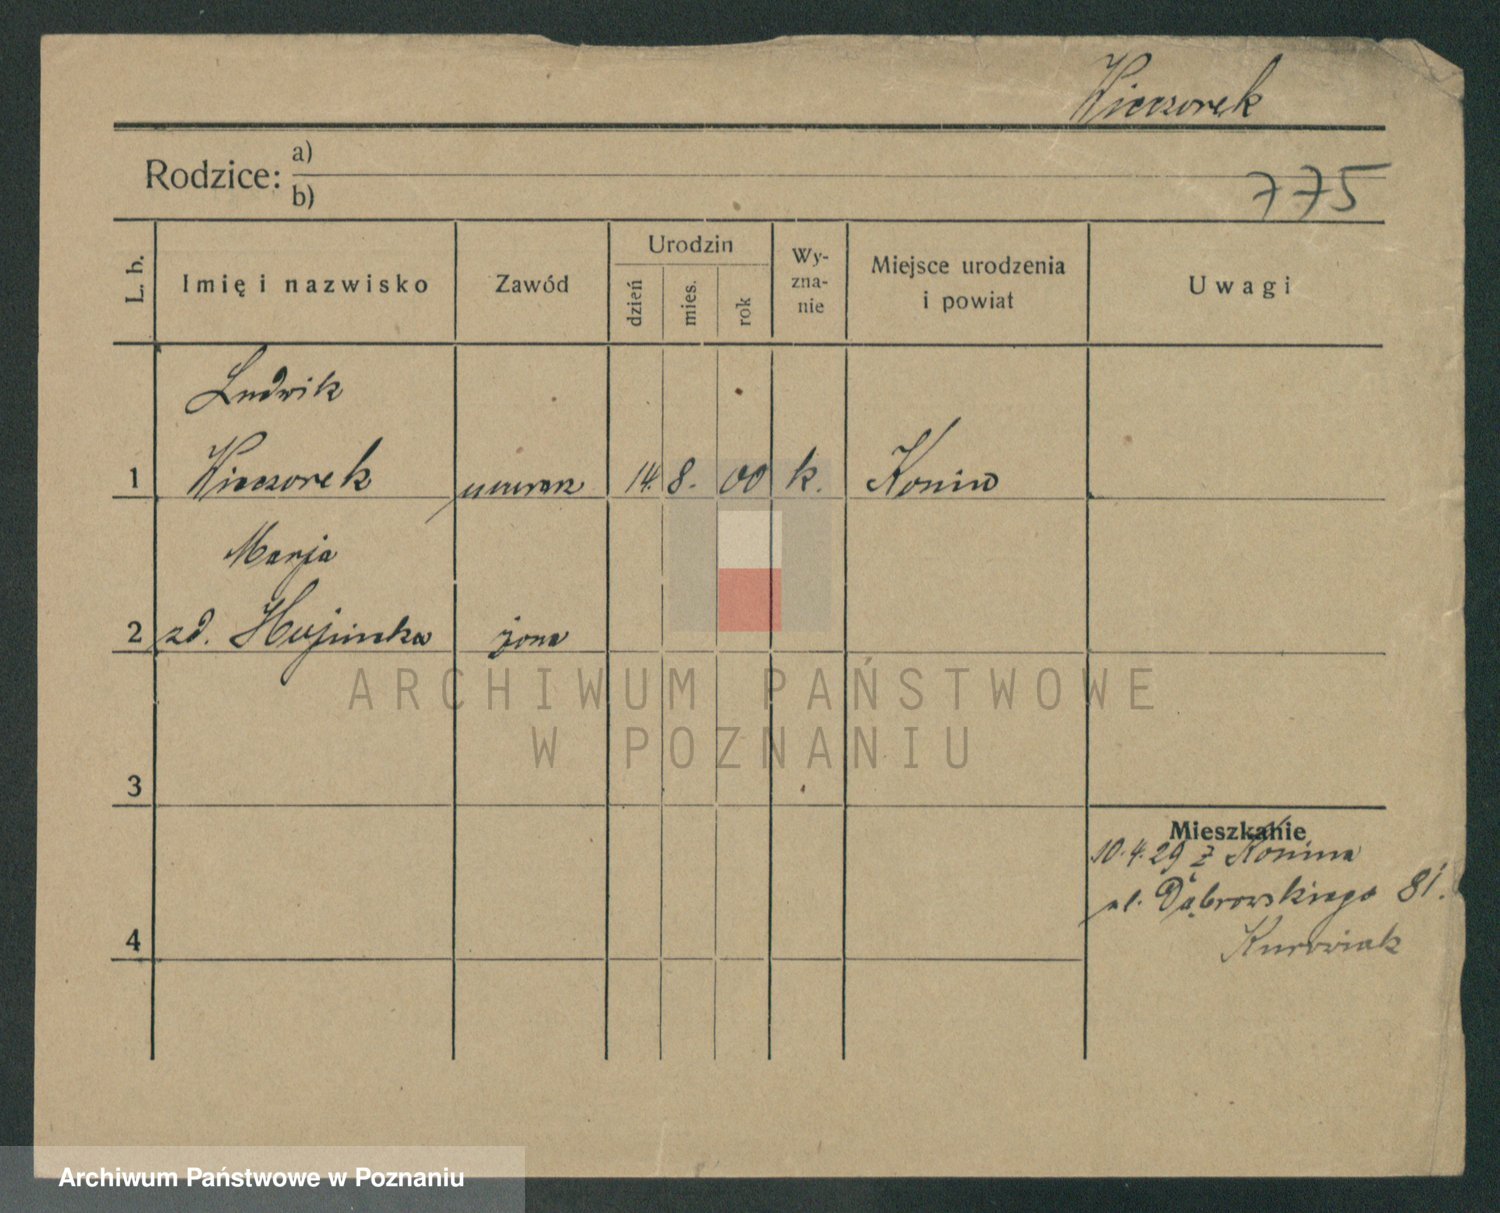 Wieczorek
Rodzice: a)
b)
775
L. b.
Imię i nazwisko
Zawód
Urodzin
dzień
mies.
rok
Wy-
zna-
nie
Miejsce urodzenia
i powiat
Uwagi
Ludwik
1 Wieczorek murarz 14. 8. 00 k. Konin
Marja
2 zd. żona
3
4
Mieszkanie
10.4.29 z Konina
ul. Dąbrowskiego 81.
ARCHIWUM PAŃSTWOWE
W POZNANIU
Archiwum Państwowe w Poznaniu